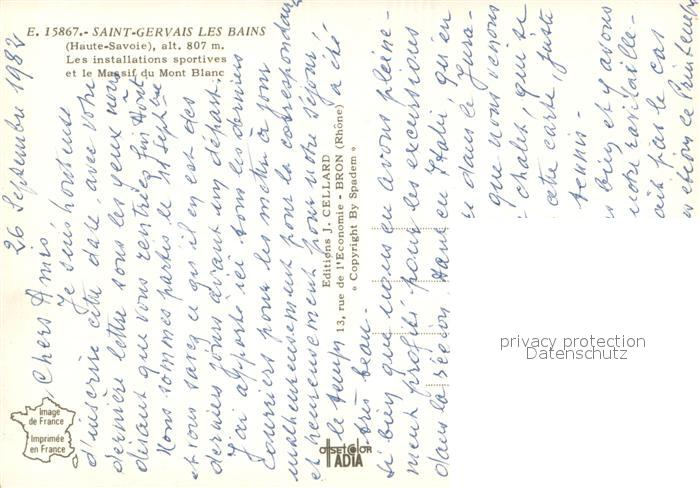 E. 15867.- SAINT-GERVAIS LES BAINS
(Haute-Savoie), alt. 807 m.
Les installations sportives
et le Massif du Mont Blanc
26 Septembre 1982
Chers Amis
Je suis honteuse
d'inscrire cette date, avec votre
dernière lettre sous les yeux nous
disant que vous rentriez fin Août
Nous sommes partis le
et vous savez ce qu'il en est des
derniers jours avant un départ.
J'ai apporté ici tous les derniers
courriers pour les mettre à jour
malheureusement pour la correspondance
et heureusement pour notre séjour
le temps a été
très beau.
Si bien que nous en avons pleine-
ment profité pour les excursions
dans la région, tant en Italie, qu'en
dans le Jura.
que nous venons
chalet, qui se
cette carte juste
tennis.
bien et y avons
notre ravitaille-
pas le cas
Editions J. CELLARD
13, rue de l'Economie - BRON (Rhône)
« Copyright By Spadem »
Image
de France
Imprimée
en France
OFFSETCOLOR
IADIA
privacy protection
Datenschutz